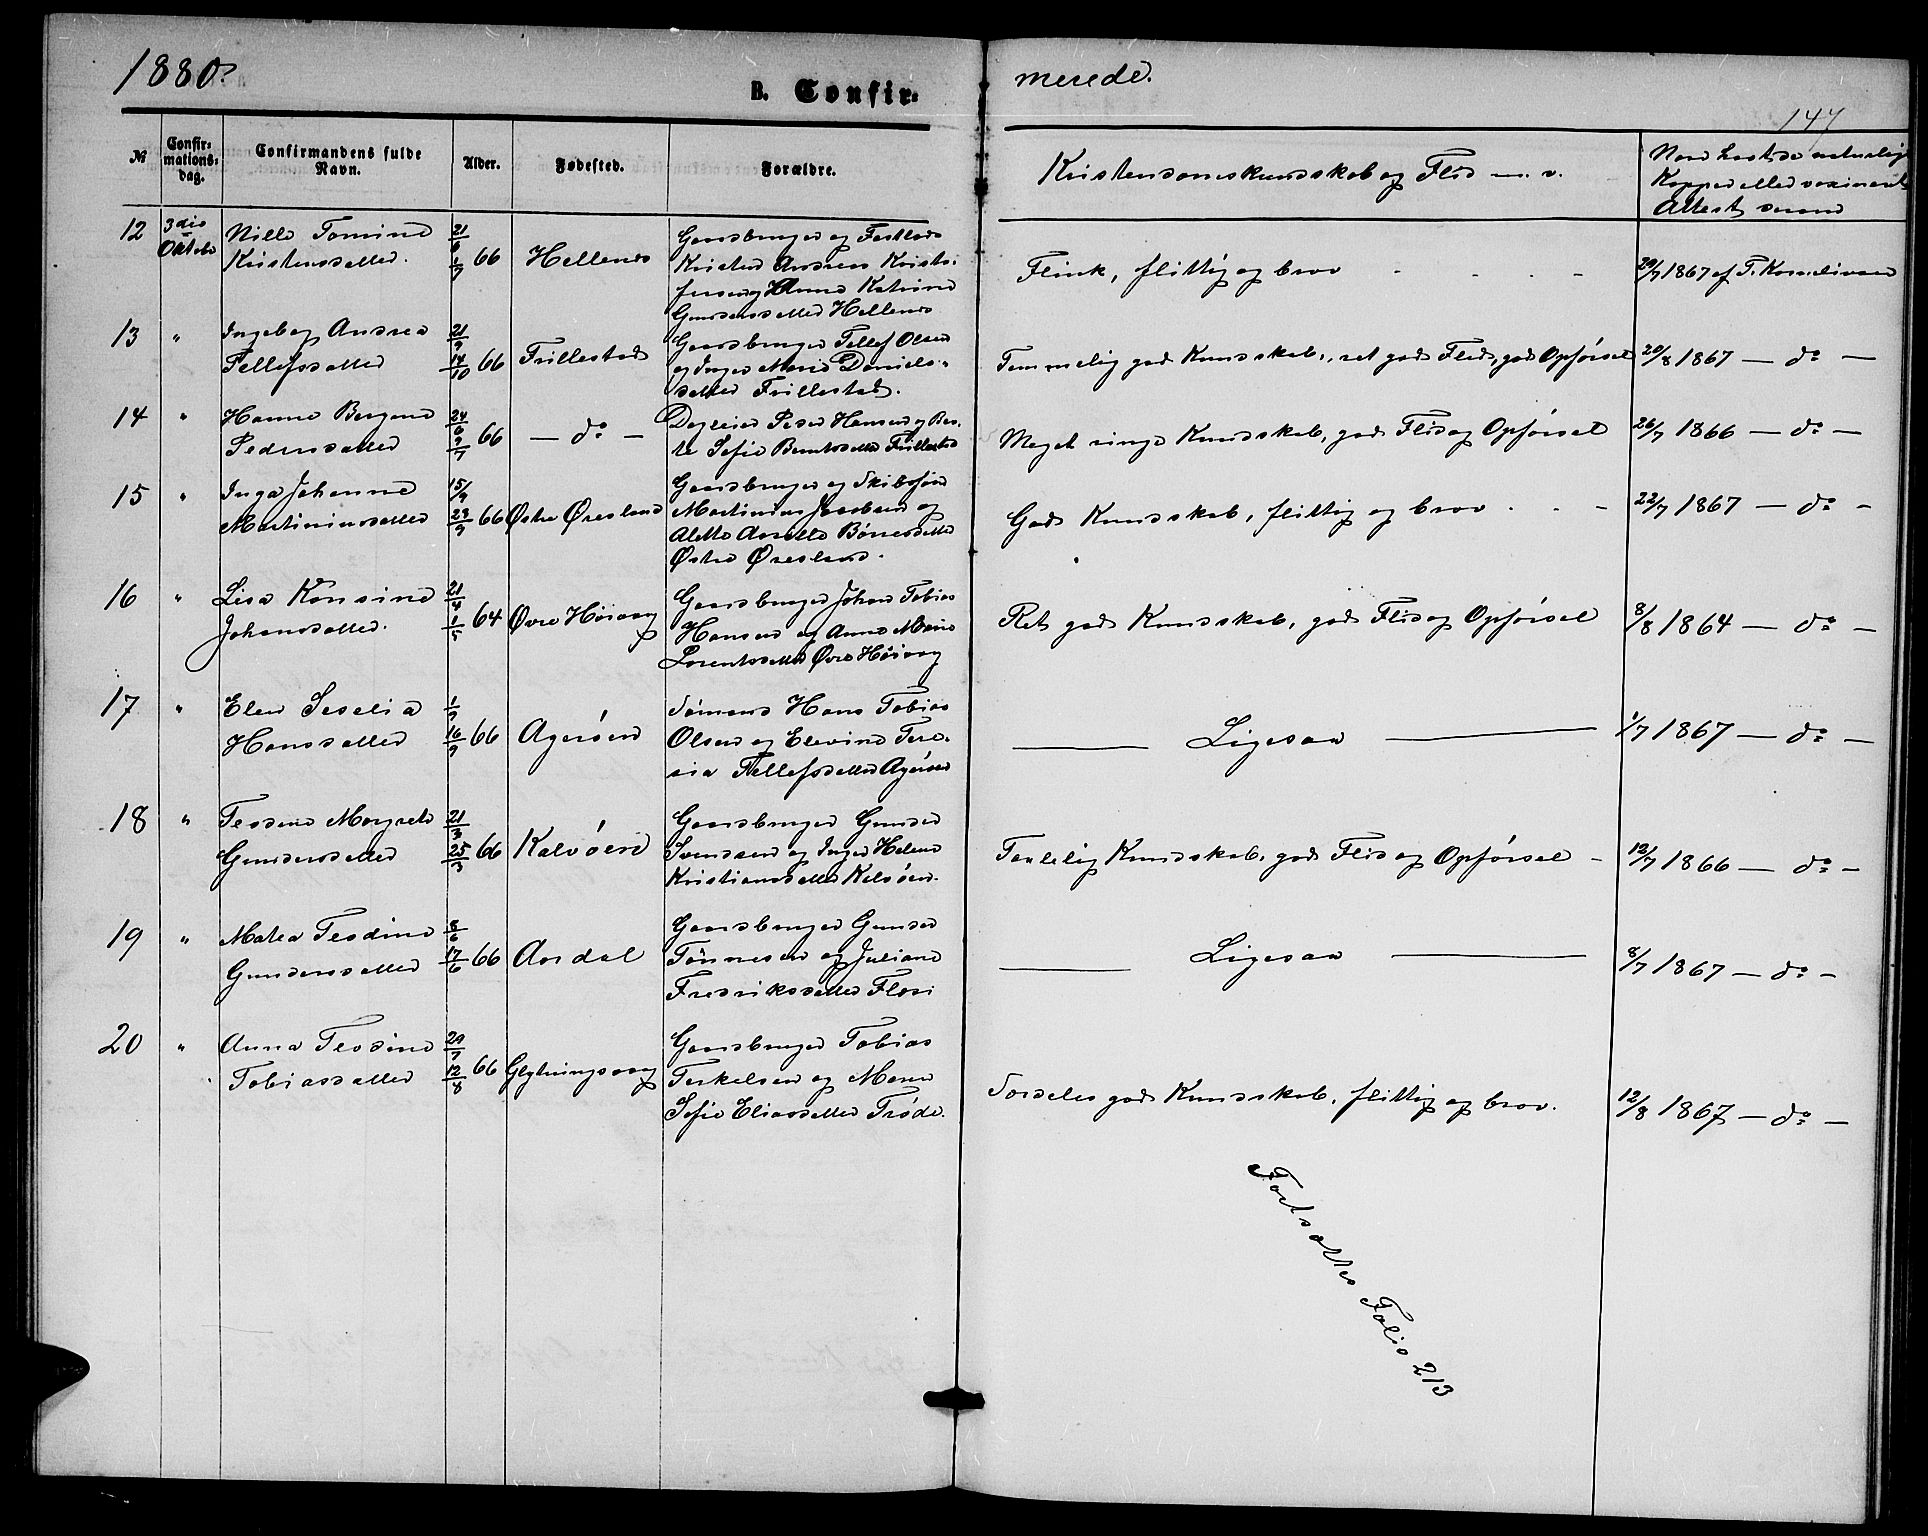 1880.
B. Confir=
merede.
147
№
Confir= mations= dag.
Confirmandens fulde Navn.
Alder.
Fødested.
Forældre.
Kristendomskundskab og Flid m. v.
Naar havt de naturlige
Kopper eller vaxineret
Attest
12 3die Oktobr Nille Tomine 21/6 66 Hellenes
Kristensdatter.
Gaardbruger og
Kristen Andreas Kristo-
fersen og Anne Katrine
Gundersdatter Hellenes
Flink, flittig og brav
29/7 1867 af T. Korneliusen
13 " Ingeborg Andrea 21/9 14/10 66 Frillestad
Tellefsdatter
Gaardbruger Tellef Olsen
og Inger Marie Daniels-
datter Frillestad.
Temmelig god Kundskab, ret god Flid, god Opførsel
20/8 1867 — do —
14 " Hanne Bergine 24/6 9/7 66 — do —
Pedersdatter
Dagleier Peder Hansen og Ber-
te Sofie Berntsdatter Frillestad
Meget ringe Kundskab, god Flid og Opførsel
26/7 1866 — do —
15 " Inga Johanne 15/9 23/9 66 Østre Øresland
Martiniusdatter
Gaardbruger og Skibsfører
Martinius Jacobsen og
Alette Aorette Børresdatter
Østre Øresland.
God Kundskab, flittig og brav
22/7 1867 — do —
16 " Lisa Konsine 21/4 1/5 64 Øvre Høivaag
Johansdatter.
Gaardbruger Johan Tobias
Hansen og Anne Marie
Lorentsdatter Øvre Høivaag
Ret god Kundskab, god Flid og Opførsel
8/8 1864 — do —
17 " Elen Seselia 1/9 16/9 66 Agerøen
Hansdatter
Sømand Hans Tobias
Olsen og Elevine Tere-
sia Tellefsdatter Agerøen
— Ligesaa —
1/7 1867 — do —
18 " Teodine Margrete 21/3 25/3 66 Kalvøen
Gundersdatter
Gaardbruger Gunder
Svendsen og Inger Helene
Kristiansdatter Kalvøen.
Taalelig Kundskab, god Flid og Opførsel
12/7 1866 — do —
19 " Matea Teodine 8/6 17/6 66 Aardal
Gundersdatter
Gaardbruger Gunder
Tønnesen og Juliane
Fredriksdatter
— Ligesaa —
8/7 1867 — do —
20 " Anna Teodine 29/7 12/8 66
Tobiasdatter
Gaardbruger Tobias
Terkelsen og Maren
Sofie Eliasdatter Trøde.
Særdeles god Kundskab, flittig og brav.
12/8 1867 — do —
Fortsættes Folio 213